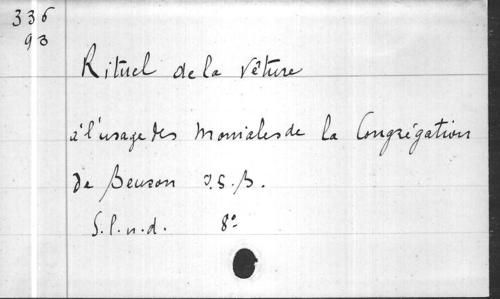 336
93
Rituel de la Vêture
à l'usage des Moniales de la Congrégation
de Beuron O.S.B.
S.l.n.d. 8°